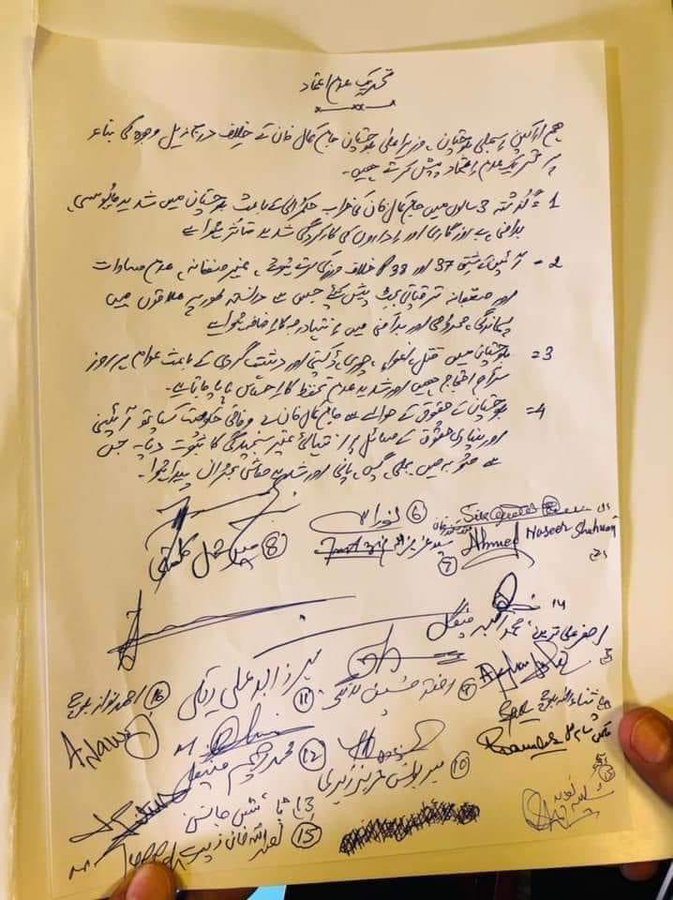 تحریک عدم اعتماد
ہم اراکین اسمبلی بلوچستان، وزیراعلیٰ بلوچستان جام کمال خان کے خلاف درج ذیل وجوہ کی بناء
پر تحریک عدم اعتماد پیش کرتے ہیں۔
1= گذشتہ 3 سالوں میں جام کمال خان کی خراب حکمرانی کے باعث بلوچستان میں شدید مایوسی،
بدامنی، بے روزگاری اور اداروں کی کارکردگی شدید متاثر ہوا ہے
2- آئین کے شق 37 اور 38 کا خلاف ورزی کرتے ہوئے، غیر منصفانہ، عدم مساوات
اور ترقیاتی بجٹ پیش کئے جس سے دانستہ طور پر علاقوں میں
پسماندگی، محرومی اور بدامنی میں انتہا درجہ کا اضافہ ہوا ہے
3= بلوچستان میں قتل، اغواء، چوری، ڈکیتی اور دہشت گردی کے باعث عوام ہر روز
سراپا احتجاج ہیں اور شدید عدم تحفظ کا احساس پایا جاتا ہے۔
4= بلوچستان کے حقوق کے حوالے سے جام کمال خان نے وفاقی حکومت کیساتھ آئینی
اور بنیادی حقوق کے مسائل پر انتہائی غیر سنجیدگی کا ثبوت دیا ہے جس
سے صوبہ میں بجلی، گیس، پانی اور شدید معاشی بحران پیدا ہوا۔
6
Ahmed Naseer Shahwani
7
8 میر حمل کلمتی
محمد اکبر مینگل
اصغر علی ترین
میر زابد علی ریکی 11
اختر حسین لانگو 9
16 احمد نواز بلوچ
A.Nawaz
ثناء اللہ بلوچ
12 محمد رحیم مینگل
میر یونس عزیز زہری 10
ٹائٹس جانسن
15 نصراللہ خان زیرے
13